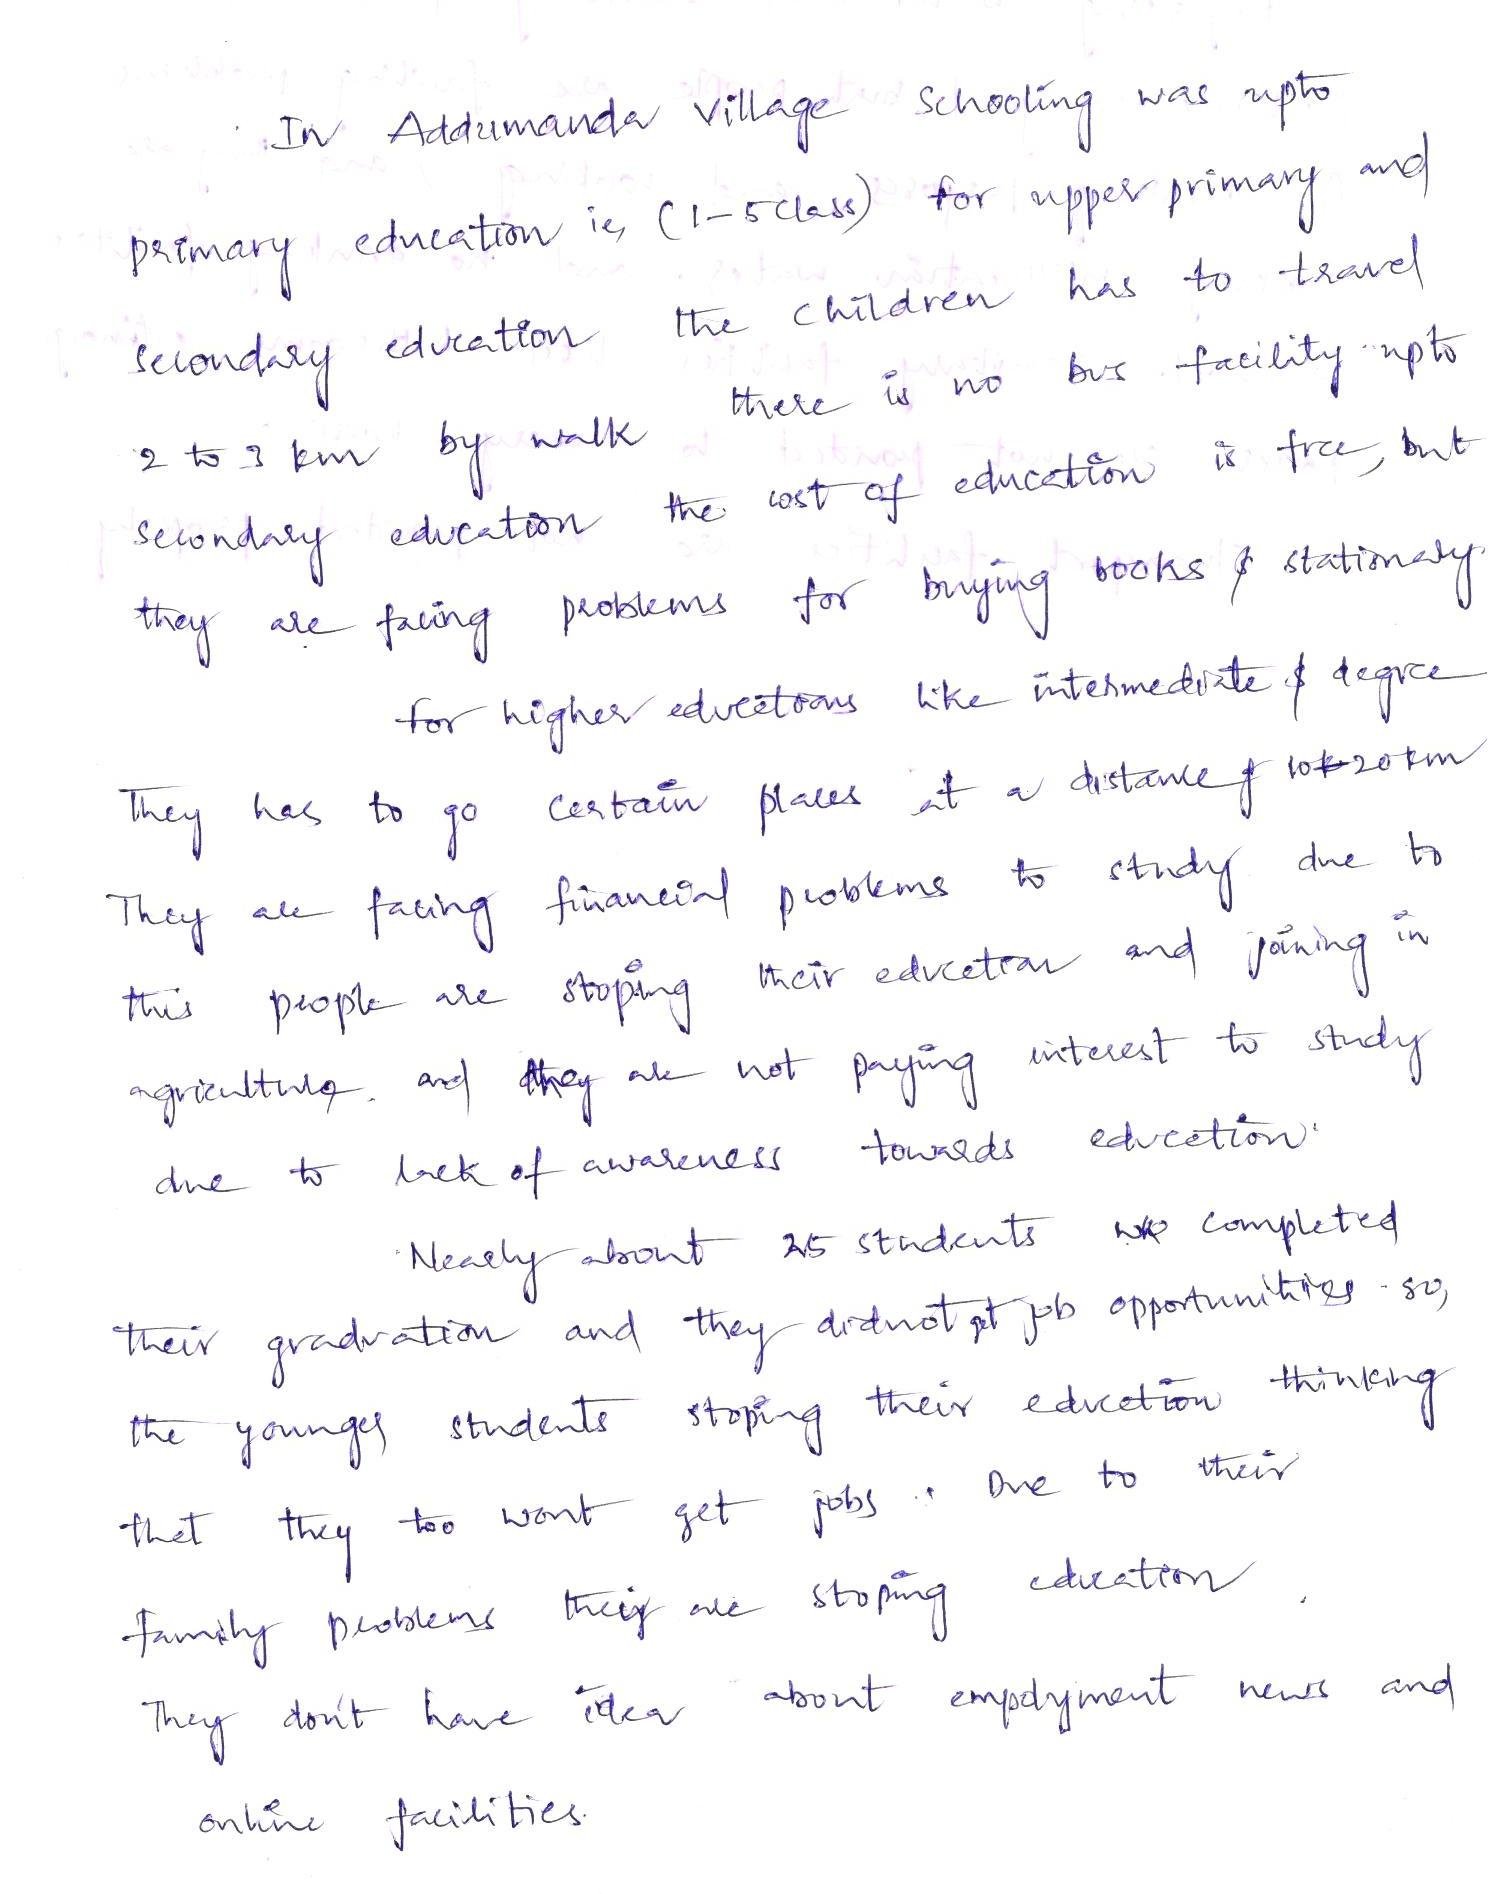 In Addumanda Village Schooling was upto
primary education ie, (1-5 class) for upper primary and
secondary education the children has to travel
2 to 3 km by walk there is no bus facility upto
secondary education the cost of education is free, but
they are facing problems for buying books & stationary.
for higher educations like intermediate & degree
They has to go certain places at a distance of 10 to 20 km
They are facing financial problems to study due to
this people are stoping their education and joining in
agriculture. and they are not paying interest to study
due to lack of awareness towards education.
Nearly about 25 students completed
their graduation and they didnot get job opportunities. so,
the younger students stoping their education thinking
that they too wont get jobs. Due to their
family problems they are stoping education.
They don't have idea about employment news and
online facilities.